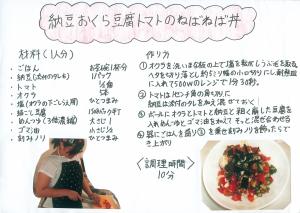 納豆おくら豆腐トマトのねばねば丼
材料(1人分)
・ごはん お茶碗1杯分
・納豆(添付のタレも) 1パック
・トマト
・オクラ 5本
・塩(オクラの下ごしらえ用) ひとつまみ
・絹ごし豆腐
・めんつゆ(3倍濃縮) 大さじ1
・ゴマ油 小さじ1
・刻みノリ ひとつまみ
作り方
①オクラを洗いまな板の上で塩を
ヘタを切り落とし 小口切りにし耐熱皿
に入れて500wのレンジで1分30秒。
②トマトは1センチ角の角切りに
納豆は添付のタレを加え混ぜておく
③ボールにオクラとトマトと納豆と粗く崩した豆腐を
入れめんつゆとゴマ油を加えて
④器にごはんを盛り③を乗せ刻みノリを飾りで
き上がり
〈調理時間〉
10分